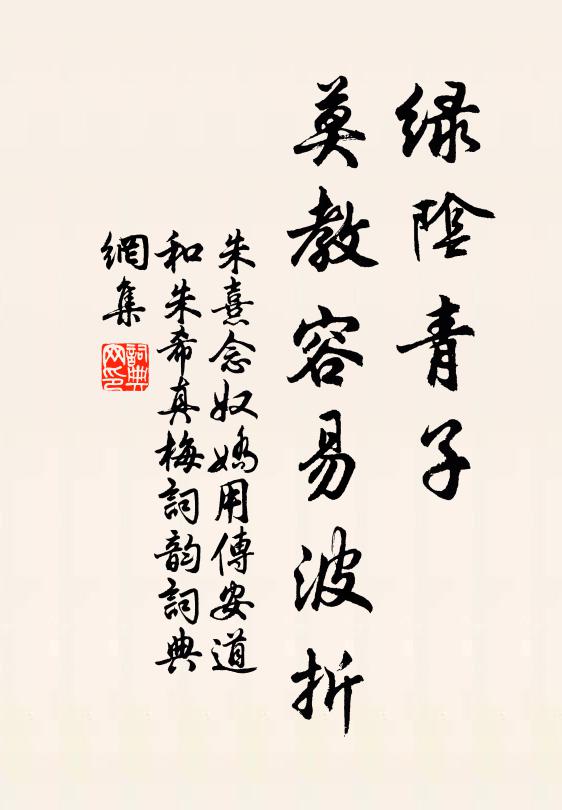 绿陰青子
莫教容易波折
朱熹念奴嬌用傅安道
和朱希真梅詞韵詞典
網集
詞典
网印